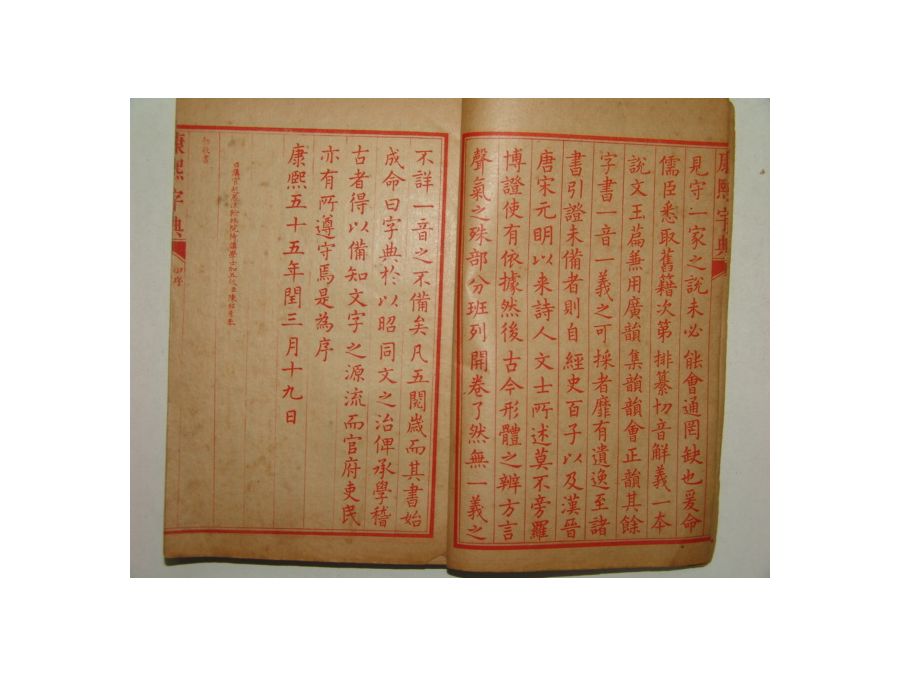 康熙字典
見守一家之說未必能會通罔缺也爰命
儒臣悉取舊籍次第排纂切音解義一本
說文玉篇兼用廣韻集韻韻會正韻其餘
字書一音一義之可採者靡有遺逸至諸
書引證未備者則自經史百子以及漢晉
唐宋元明以來詩人文士所述莫不旁羅
博證使有依據然後古今形體之辨方言
聲氣之殊部分班列開卷了然無一義之
不詳一音之不備矣凡五閱歲而其書始
成命曰字典於以昭同文之治俾承學稽
古者得以備知文字之源流而官府吏民
亦有所遵守焉是為序
康熙五十五年閏三月十九日
敕敬書
康熙字典
御序